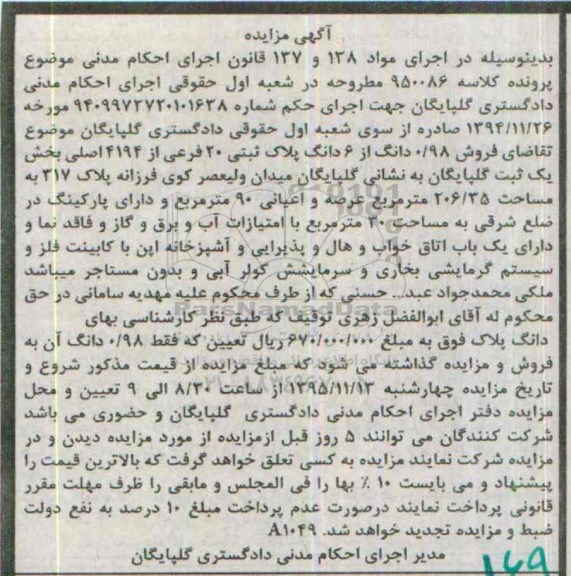 آگهی مزایده
بدینوسیله در اجرای مواد ۱۳۸ و ۱۳۷ قانون اجرای احکام مدنی موضوع
پرونده کلاسه ۹۵۰۰۸۶ مطروحه در شعبه اول حقوقی اجرای احکام مدنی
دادگستری گلپایگان جهت اجرای حکم شماره ۹۴۰۹۹۷۳۷۲۰۱۰۱۶۳۸ مورخه
۱۳۹۴/۱۱/۲۶ صادره از سوی شعبه اول حقوقی دادگستری گلپایگان موضوع
تقاضای فروش ۰/۹۸ دانگ از ۶ دانگ پلاک ثبتی ۲۰ فرعی از ۴۱۹۴ اصلی بخش
یک ثبت گلپایگان به نشانی گلپایگان میدان ولیعصر کوی فرزانه پلاک ۳۱۷ به
مساحت ۲۰۶/۳۵ مترمربع عرصه و اعیانی ۹۰ مترمربع و دارای پارکینگ در
ضلع شرقی به مساحت ۲۰ مترمربع با امتیازات آب و برق و گاز و فاقد نما و
دارای یک باب اتاق خواب و هال و پذیرایی و آشپزخانه اپن با کابینت فلز و
سیستم گرمایشی بخاری و سرمایشش کولر آبی و بدون مستاجر میباشد
ملکی محمدجواد عبد... حسنی که از طرف محکوم علیه مهدیه سامانی در حق
محکوم له آقای ابوالفضل زهری توقیف که طبق نظر کارشناسی بهای
دانگ پلاک فوق به مبلغ ۶۷۰/۰۰۰/۰۰۰ ریال تعیین که فقط ۰/۹۸ دانگ آن به
فروش و مزایده گذاشته می شود که مبلغ مزایده از قیمت مذکور شروع و
تاریخ مزایده چهارشنبه ۱۳۹۵/۱۱/۱۳ از ساعت ۸/۳۰ الی ۹ تعیین و محل
مزایده دفتر اجرای احکام مدنی دادگستری گلپایگان و حضوری می باشد
شرکت کنندگان می توانند ۵ روز قبل ازمزایده از مورد مزایده دیدن و در
مزایده شرکت نمایند مزایده به کسی تعلق خواهد گرفت که بالاترین قیمت را
پیشنهاد و می بایست ۱۰ ٪ بها را فی المجلس و مابقی را ظرف مهلت مقرر
قانونی پرداخت نمایند درصورت عدم پرداخت مبلغ ۱۰ درصد به نفع دولت
ضبط و مزایده تجدید خواهد شد. A۱۰۴۹
مدیر اجرای احکام مدنی دادگستری گلپایگان
۱۶۹